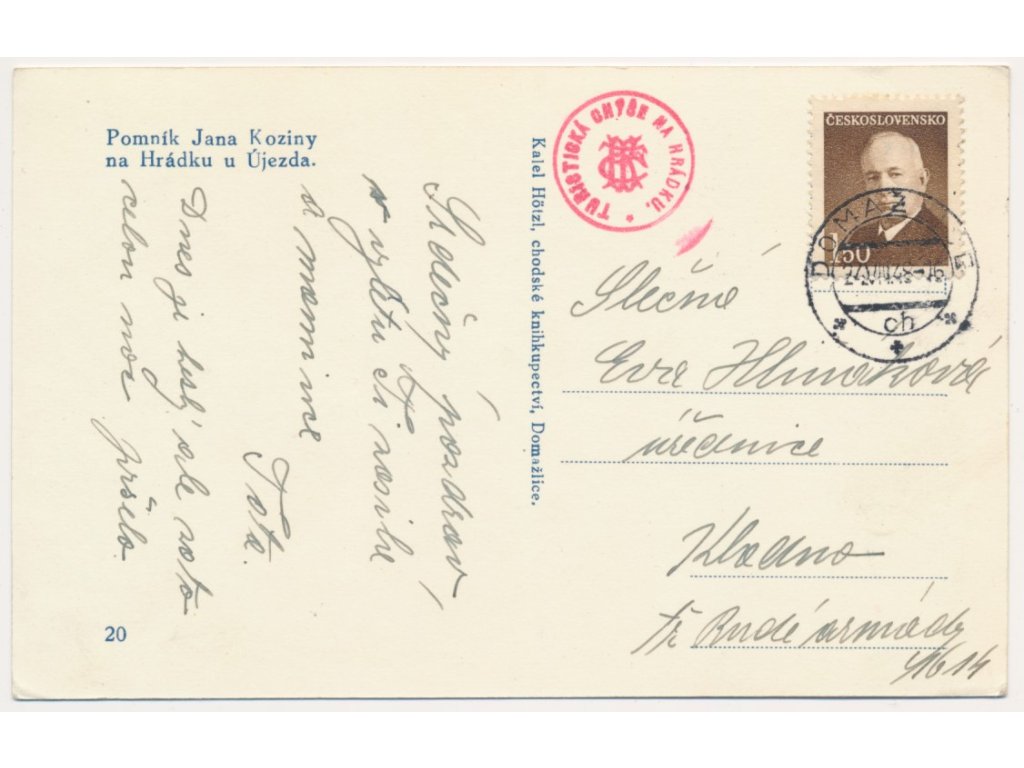 Pomník Jana Koziny
na Hrádku u Újezda.
Srdečný pozdrav
s výletu Ti zasílá
a mamince
Táta.
Dnes je hezky ale zato
celou noc pršelo.
20
Kalel Hötzl, chodské knihkupectví, Domažlice.
TURISTICKÁ CHÝŠE NA HRÁDKU.
ČESKOSLOVENSKO
1.50
DOMAŽLICE
ch
Slečna
Eva Hlmáková
úřednice
Kladno
tř. Rudé armády
1614